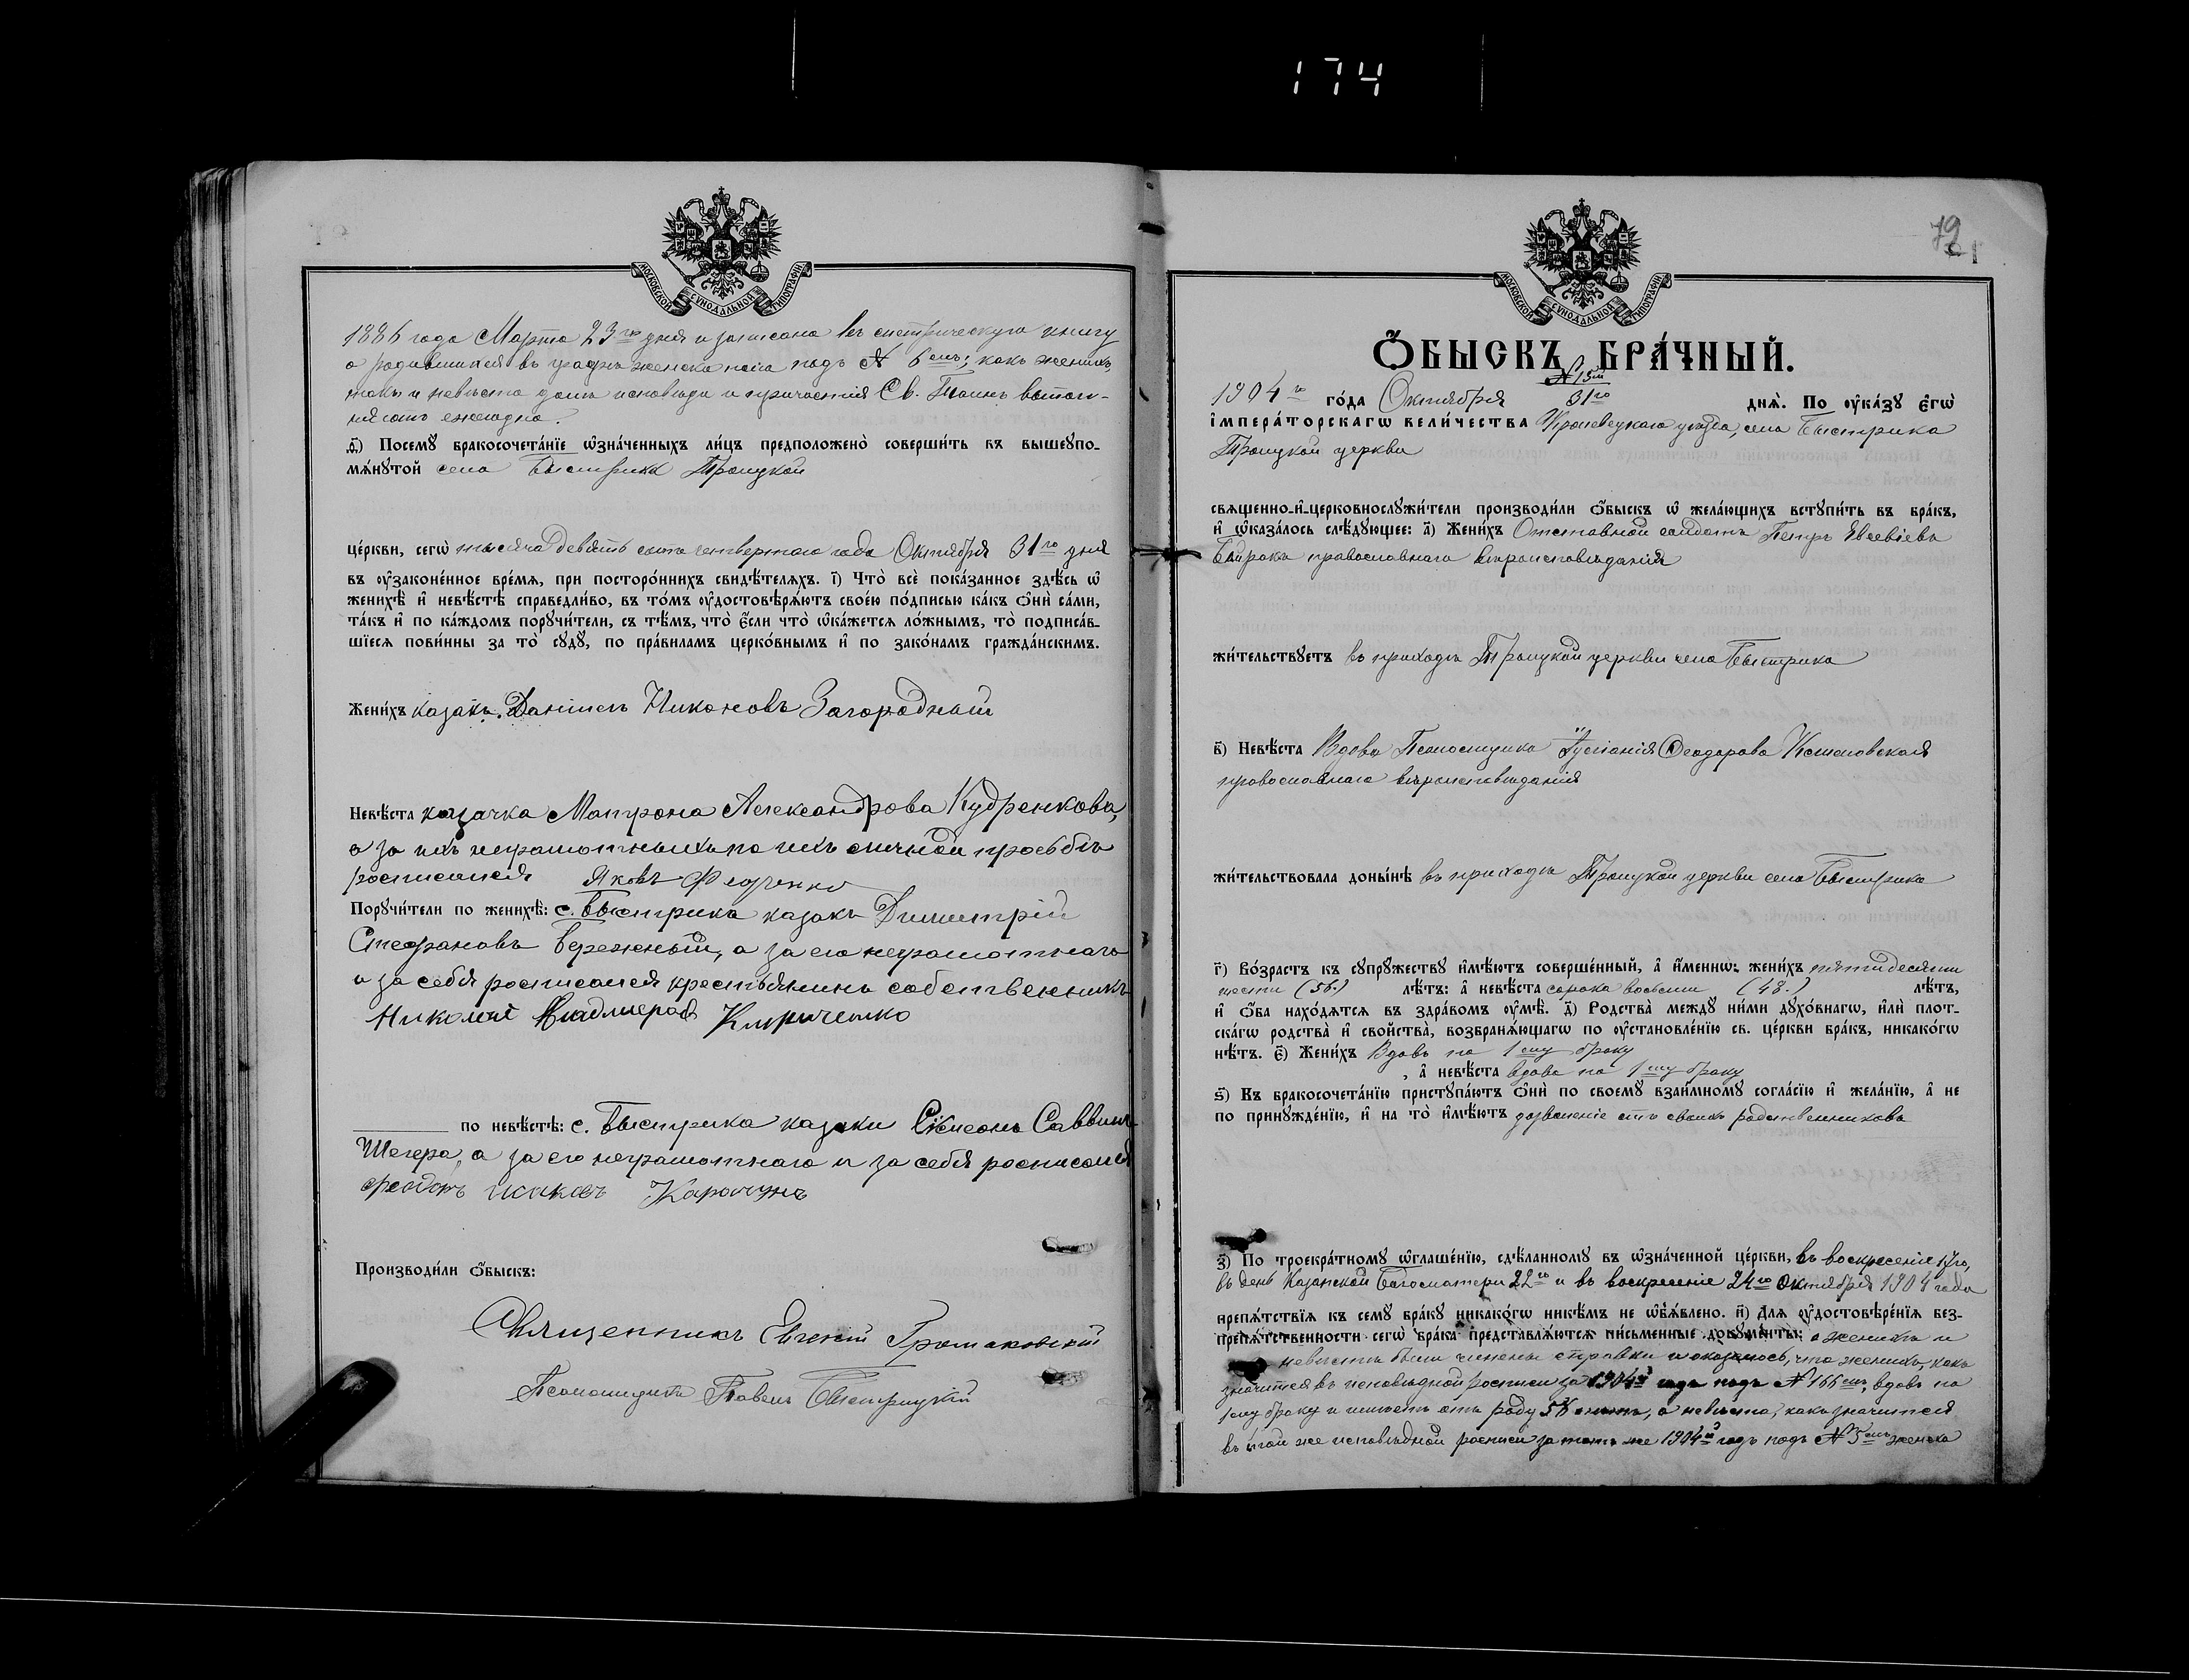 174
МОСКОВСКОЙ СѴНОДАЛЬНОЙ ТИПОГРАФІИ
1886 года Марта 23го дня и записана въ метрическую книгу
о родившихся въ графѣ женска пола подъ № 6емъ; какъ женихъ,
такъ и невѣста долгъ исповѣди и причастія Св. Таинъ выпол-
няютъ ежегодно.
д҃) Посемꙋ бракосочетáнїе ѡ҆знáченныхъ ли́цъ предположенò соверши́ть въ вышеꙋпо-
мѧ́нꙋтой села Быстрика Троицкой
це́ркви, сегѡ̀ тысяча девятьсотъ четвертаго года Октября 31го дня
въ ᲂу҆законе́нное вре́мѧ, при посторо́ннихъ свидѣ́телѧхъ. і҃) Чтò всѐ пока́занное здѣ́сь ѡ҆
женихѣ̀ и҆ невѣ́стѣ справедли́во, въ то́мъ ᲂу҆достовѣрѧ́ютъ свое́ю по́дписью ка́къ ѻ҆нѝ са́ми,
та́къ и҆ по ка́ждомъ порꙋчи́тели, съ тѣ́мъ, чтò є҆́сли чтò ѡ҆ка́жетсѧ ло́жнымъ, тò подписа́в-
шїесѧ пови́нны за тò сꙋдꙋ̀, по пра́виламъ церко́внымъ и҆ по зако́намъ гражда́нскимъ.
Жени́хъ казакъ Даніилъ Никоновъ Загородный
Невѣ́ста казачка Матрона Александрова Кудренкова,
а за ихъ неграмотныхъ по ихъ личной просьбѣ
росписался Яковъ Федченко
Порꙋчи́тели по женихѣ̀: с. Быстрика казакъ Димитрій
Стефановъ Бережный, а за его неграмотнаго
и за себя росписался крестьянинъ собственникъ
Николай Владиміровъ Кириченко
по невѣ́стѣ: с. Быстрика казаки Симеонъ Саввинъ
Шегера, а за его неграмотнаго и за себя росписался
Производи́ли ѻ҆́быскъ:
Священникъ Евгеній Громаковскій
Псаломщикъ Павелъ Быстрицкій
МОСКОВСКОЙ СѴНОДАЛЬНОЙ ТИПОГРАФІИ
79
Ѻ҆́БЫСКЪ БРА́ЧНЫЙ.
№ 15й
1904го го́да Октября 31го днѧ̀. По ᲂу҆ка́зꙋ є҆гѡ̀
і҆мпера́торскагѡ вели́чества Кролевецкаго уѣзда, села Быстрика
Троицкой церкви
свѧщенно-и҆-церковнослꙋжи́тели производи́ли ѻ҆́быскъ ѡ҆ жела́ющихъ встꙋпи́ть въ бра́къ,
и҆ ѡ҆каза́лось слѣ́дꙋющее: а҃) Жени́хъ Отставной солдатъ Петръ Евсевіевъ
православнаго вѣроисповѣданія
жи́тельствꙋетъ въ приходѣ Троицкой церкви села Быстрика
в҃) Невѣ́ста Вдова Псаломщика Ѳеодорова
православнаго вѣроисповѣданія
жи́тельствовала доны́нѣ въ приходѣ Троицкой церкви села Быстрика
г҃) Во́зрастъ къ сꙋпрꙋ́жествꙋ и҆мѣ́ютъ соверше́нный, а҆ и҆́меннѡ: жени́хъ пятидесяти
шести (56.) лѣ́тъ: а҆ невѣ́ста сорока восьми (48.) лѣ́тъ,
и҆ ѻ҆́ба нахо́дѧтсѧ въ здра́вомъ ᲂу҆мѣ̀. д҃) Родства̀ междꙋ ни́ми дꙋхо́внагѡ, и҆лѝ плот-
ска́гѡ родства̀ и҆ сво́йства̀, возбранѧ́ющагѡ по ᲂу҆становле́нїю св. це́ркви бра́къ, никако́гѡ
нѣ́тъ. є҃) Жени́хъ Вдовъ по 1му браку
, а҆ невѣ́ста вдова по 1му браку
ѕ҃) Къ бракосочета́нїю пристꙋпа́ютъ ѻ҆нѝ по своемꙋ̀ взаи́мномꙋ согла́сїю и҆ жела́нїю, а҆ не
по принꙋжде́нїю, и҆ на тò и҆мѣ́ютъ дозволеніе отъ своихъ родственниковъ
з҃) По троекра́тномꙋ ѡ҆глаше́нїю, сдѣ́ланномꙋ въ ѡ҆зна́ченной це́ркви, въ воскресеніе 17го,
въ день Казанской Богоматери 22го и въ воскресеніе 24го Октября 1904 года
препѧ́тствїѧ къ семꙋ̀ бра́кꙋ никако́гѡ никѣ́мъ не ѡ҆б̾ѧ́влено. и҃) Длѧ ᲂу҆достовѣре́нїѧ без-
препѧ́тственности сегѡ̀ бра́ка представлѧ́ютсѧ пи́сьменные докꙋме́нты: о женихѣ и
невѣстѣ были чинены справки и оказалось, что женихъ, какъ
значится въ исповѣдной росписи за 1904й годъ подъ № 166емъ, вдовъ по
1му браку и имѣетъ отъ роду 56 лѣтъ, а невѣста, какъ значится
въ той же исповѣдной росписи за тотъ же 1904й годъ подъ № 5емъ женска